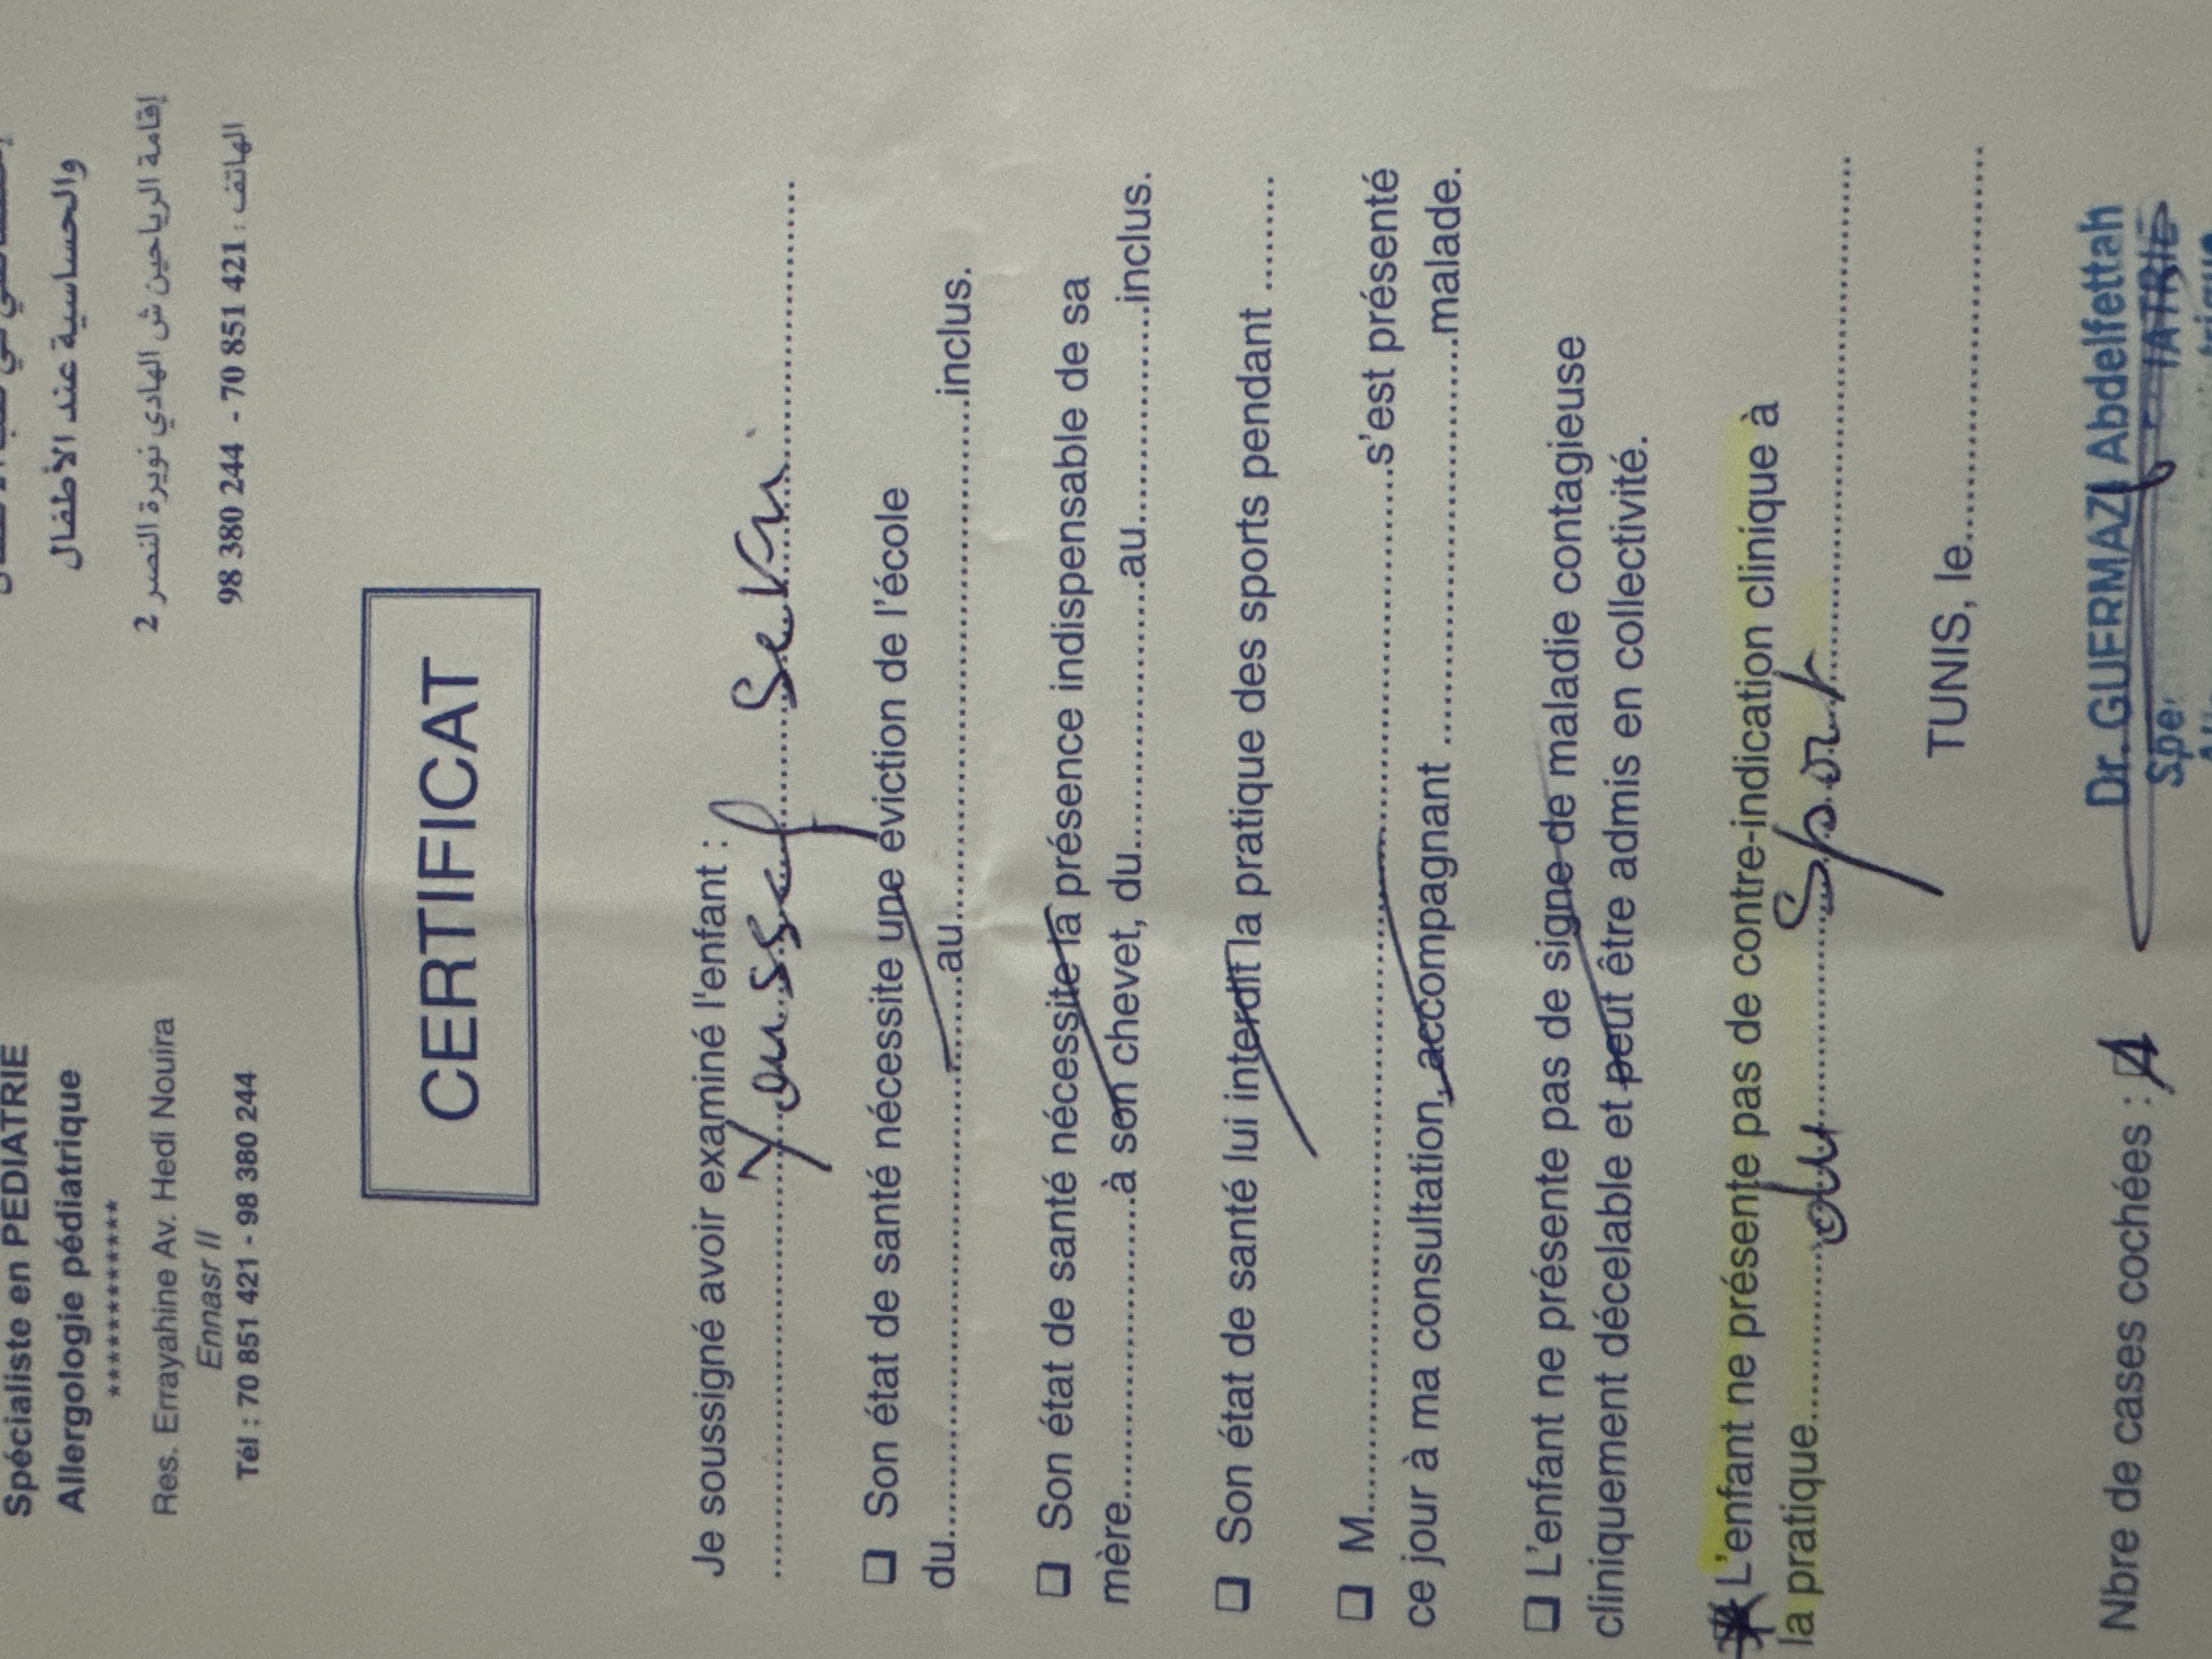 Spécialiste en PEDIATRIE
Allergologie pédiatrique
***********
Res. Errayahine Av. Hedi Nouira
Ennasr II
Tél : 70 851 421 - 98 380 244
والحساسية عند الأطفال
إقامة الرياحين ش الهادي نويرة النصر 2
الهاتف : 421 851 70 - 244 380 98
CERTIFICAT
Je soussigné avoir examiné l'enfant :
Youssef
❑ Son état de santé nécessite une éviction de l'école
du..............au..............inclus.
❑ Son état de santé nécessite la présence indispensable de sa
mère..............à son chevet, du..............au..............inclus.
❑ Son état de santé lui interdit la pratique des sports pendant ........
❑ M..............s'est présenté
ce jour à ma consultation, accompagnant ..............malade.
❑ L'enfant ne présente pas de signe de maladie contagieuse
cliniquement décelable et peut être admis en collectivité.
L'enfant ne présente pas de contre-indication clinique à
la pratique..............du..............Sport..............
TUNIS, le..............
Nbre de cases cochées : 1
Dr. GUERMAZI Abdelfettah